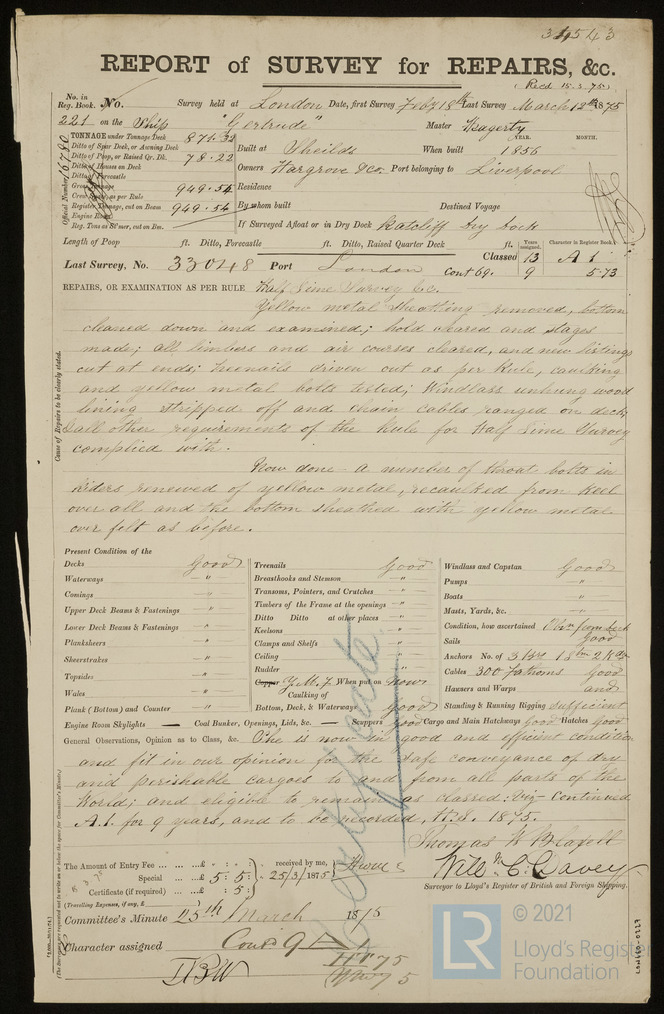 34543
REPORT of SURVEY for REPAIRS, &c.
(Recd 15.3.75)
No. in Reg. Book. No. Survey held at London Date, first Survey Feby 18th Last Survey March 12th 1875
221 on the Ship "Gertrude" Master Hagerty
YEAR. MONTH.
TONNAGE under Tonnage Deck 871.32 Built at Sheilds When built 1856
Ditto of Spar Deck, or Awning Deck
Ditto of Poop, or Raised Qr. Dk. 78.22 Owners Hargrove &Co. Port belonging to Liverpool
Ditto of Houses on Deck
Ditto of Forecastle
Gross Tonnage 949.54 Residence
Crew Space, as per Rule
Register Tonnage, cut on Beam 949.54 By whom built Destined Voyage
Engine Room
Reg. Tons as Steamer, cut on Bm. If Surveyed Afloat or in Dry Dock Ratcliff Dry Dock
Official Number 16780
Length of Poop ft. Ditto, Forecastle ft. Ditto, Raised Quarter Deck ft. Years assigned. Character in Register Book
Last Survey, No. 33048 Port London Classed 13 A 1
Cont 69. 9 5.73
REPAIRS, OR EXAMINATION AS PER RULE Half Time Survey &c.
Cause of Repairs to be clearly stated.
Yellow metal sheathing removed, bottom
cleaned down and examined; hold cleared and stages
made; all limbers and air courses cleared, and new listings
cut at ends; treenails driven out as per Rule, caulking
and yellow metal bolts tested; Windlass unhung wood
lining stripped off and chain cables ranged on deck,
& all other requirements of the Rule for Half Time Survey
complied with.
Now done - a number of throat bolts in
riders renewed of yellow metal, recaulked from Keel
over all and the bottom sheathed with yellow metal
over felt as before.
Present Condition of the
Decks Good Treenails Good Windlass and Capstan Good
Waterways " Breasthooks and Stemson " Pumps "
Comings " Transoms, Pointers, and Crutches " Boats "
Upper Deck Beams & Fastenings " Timbers of the Frame at the openings " Masts, Yards, &c. "
Lower Deck Beams & Fastenings " Ditto Ditto at other places " Condition, how ascertained Obsn from deck
Planksheers " Keelsons " Sails Good
Sheerstrakes " Clamps and Shelfs " Anchors No. of 3 Brs 1 Stm 2 Kgs
Topsides " Ceiling " Cables 300 fathoms Good
Wales " Rudder " Hausers and Warps and
Copper Y.M. When put on Now
Caulking of
Plank (Bottom) and Counter " Bottom, Deck, & Waterways Good Standing & Running Rigging sufficient
Engine Room Skylights — Coal Bunker, Openings, Lids, &c. — Scuppers Good Cargo and Main Hatchways Good Hatches Good
General Observations, Opinion as to Class, &c. She is now in good and efficient condition
and fit in our opinion for the safe conveyance of dry
and perishable cargoes to and from all parts of the
World; and eligible to remain as classed: viz- Continued
A.1. for 9 years, and to be recorded, 1875.
Certificate
Thomas W
Will. C. Davey
Surveyor to Lloyd's Register of British and Foreign Shipping.
The Amount of Entry Fee ... £ : : received by me,
Special ... £ 5 : 5 : 25/3/1875
Certificate (if required) ... : 5 :
(Travelling Expenses, if any, £
Committee's Minute 25th March 1875
Character assigned Contd 9 A 1
HT 75
5
© 2021
LR Lloyd's Register
Foundation
LON660-0227